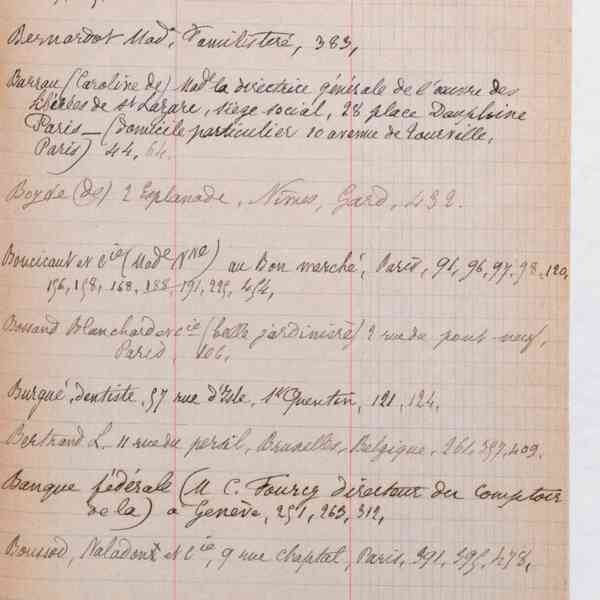 Bernardot Made, Familistère, 383,
Barrau (Caroline de) Made la directrice générale de l'œuvre des
libérées de St Lazare, siège social, 28 place Dauphine
Paris — (domicile particulier 10 avenue de Tourville,
Paris) 44, 64.
Boyde (de) 2 Esplanade, Nîmes, Gard, 432.
Boucicaut et Cie (Made Vve) au Bon marché, Paris, 91, 96, 97, 98, 120,
156, 158, 168, 188, 191, 225, 454,
Bessand Blanchard et cie (belle jardinière) 2 rue du pont neuf,
Paris, 106,
Burgué, dentiste, 57 rue d'Isle, St Quentin, 121, 124,
Bertrand L. 11 rue du persil, Bruxelles, Belgique, 261, 397, 409.
Banque fédérale (M C. Fourcy Directeur du Comptoir
de la) à Genève, 251, 263, 312,
Boussod, Valadon et Cie, 9 rue Chaptal, Paris, 391, 395, 478,